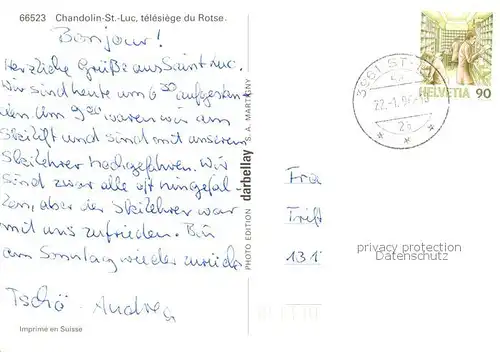 66523 Chandolin-St.-Luc, télésiège du Rotse.
Bonjour!
Herzliche Grüße aus Saint Luc.
Wir sind heute um 6 30 aufgestan
den um 9 30 waren wir am
Skilift und sind mit unserem
Skilehrer hochgefahren. Wir
sind zwar alle oft hingefal-
len, aber der Skilehrer war
mit uns zufrieden. Bin
am Sonntag wieder zurück
Tschö Andrea
Imprimé en Suisse
PHOTO EDITION darbellay S. A. MARTIGNY
HELVETIA 90
3961 ST-
22.-1.
Fra
Trift
131
privacy protection
Datenschutz